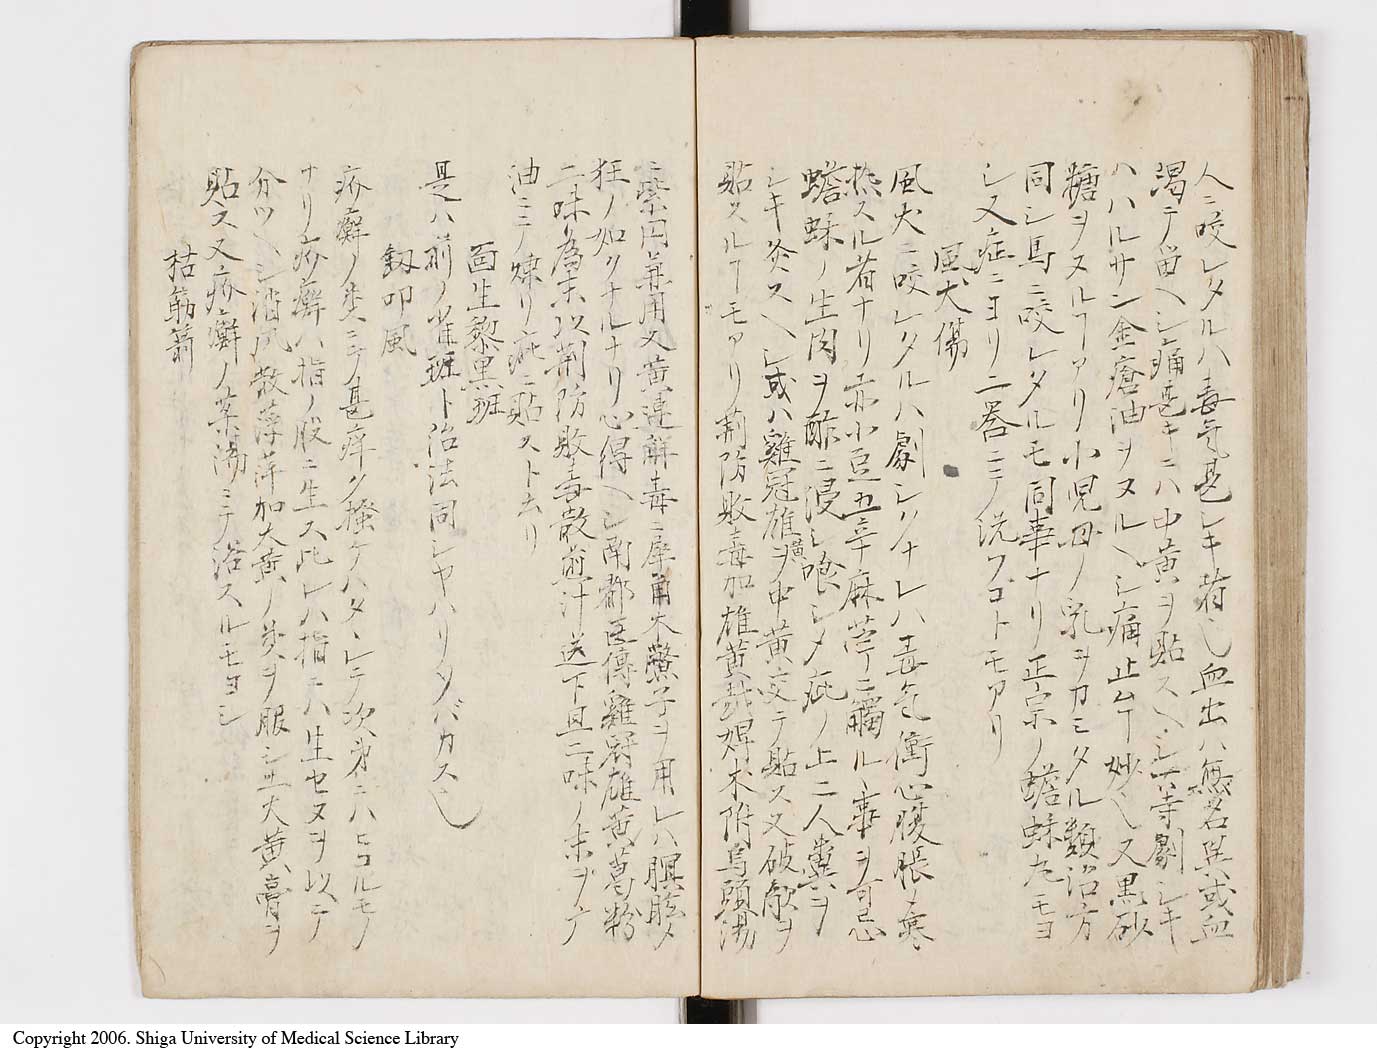 人ニ咬レタルハ毒気甚シキ者也血出ハ無名異或血
渇テ留ヘシ痛甚キニハ中黄ヲ貼スヘシ六寺劇シキ
ハハルサン金瘡油ヲヌルヘシ痛止ムヿ妙也又黒砂
糖ヲヌルヿアリ小児母ノ乳ヲカミタル類治方
同シ馬ニ咬レタルモ同事ナリ正宗ノ蟾蛛丸モヨ
シ又症ニヨリ二呂ニテ洗フコトモアリ
風犬傷
風犬ニ咬レタルハ劇シソナレハ毒気衝心腹脹メ寒
熱スル者ナリ赤小豆五辛麻苧ニ觸ルヽ事ヲ可忌
蟾蛛ノ生肉ヲ酢ニ浸シ喰シメ疵ノ上ニ人糞ヲ
シキ灸スヘシ或ハ雞冠雄黄ヲ中黄ニ交テ貼ス又破敵ヲ
貼スルヿモアリ荊防敗毒加雄黄或婢木附烏頭湯
ニ紫円兼用又黄連解毒ニ犀角大鱉子ヲ用レハ瞑眩メ
狂ノ如クナルナリ心得ヘシ南都医傳雞冠雄黄葛粉
二味為末以荊防敗毒散煎汁送下且二味ノ末ヲテ
油ニテ煉リ疵ニ貼スト云リ
面生黎黒班
是ハ前ノ雀班ト治法同シヤハリソバカス也
釼叩風
疥癬ノ类ニテ甚痒ク搔ケハタヽレテ次第ニハヒコルモノ
ナリ疥癬ハ指ノ股ニ生ス此レハ指ニハ生セヌヲ以テ
分ツヘシ消風散薄萍加大黄ノ类ヲ服シ亚大黄膏ヲ
貼ス又疥癬ノ薬湯ニテ浴スルモヨシ
枯筋箭